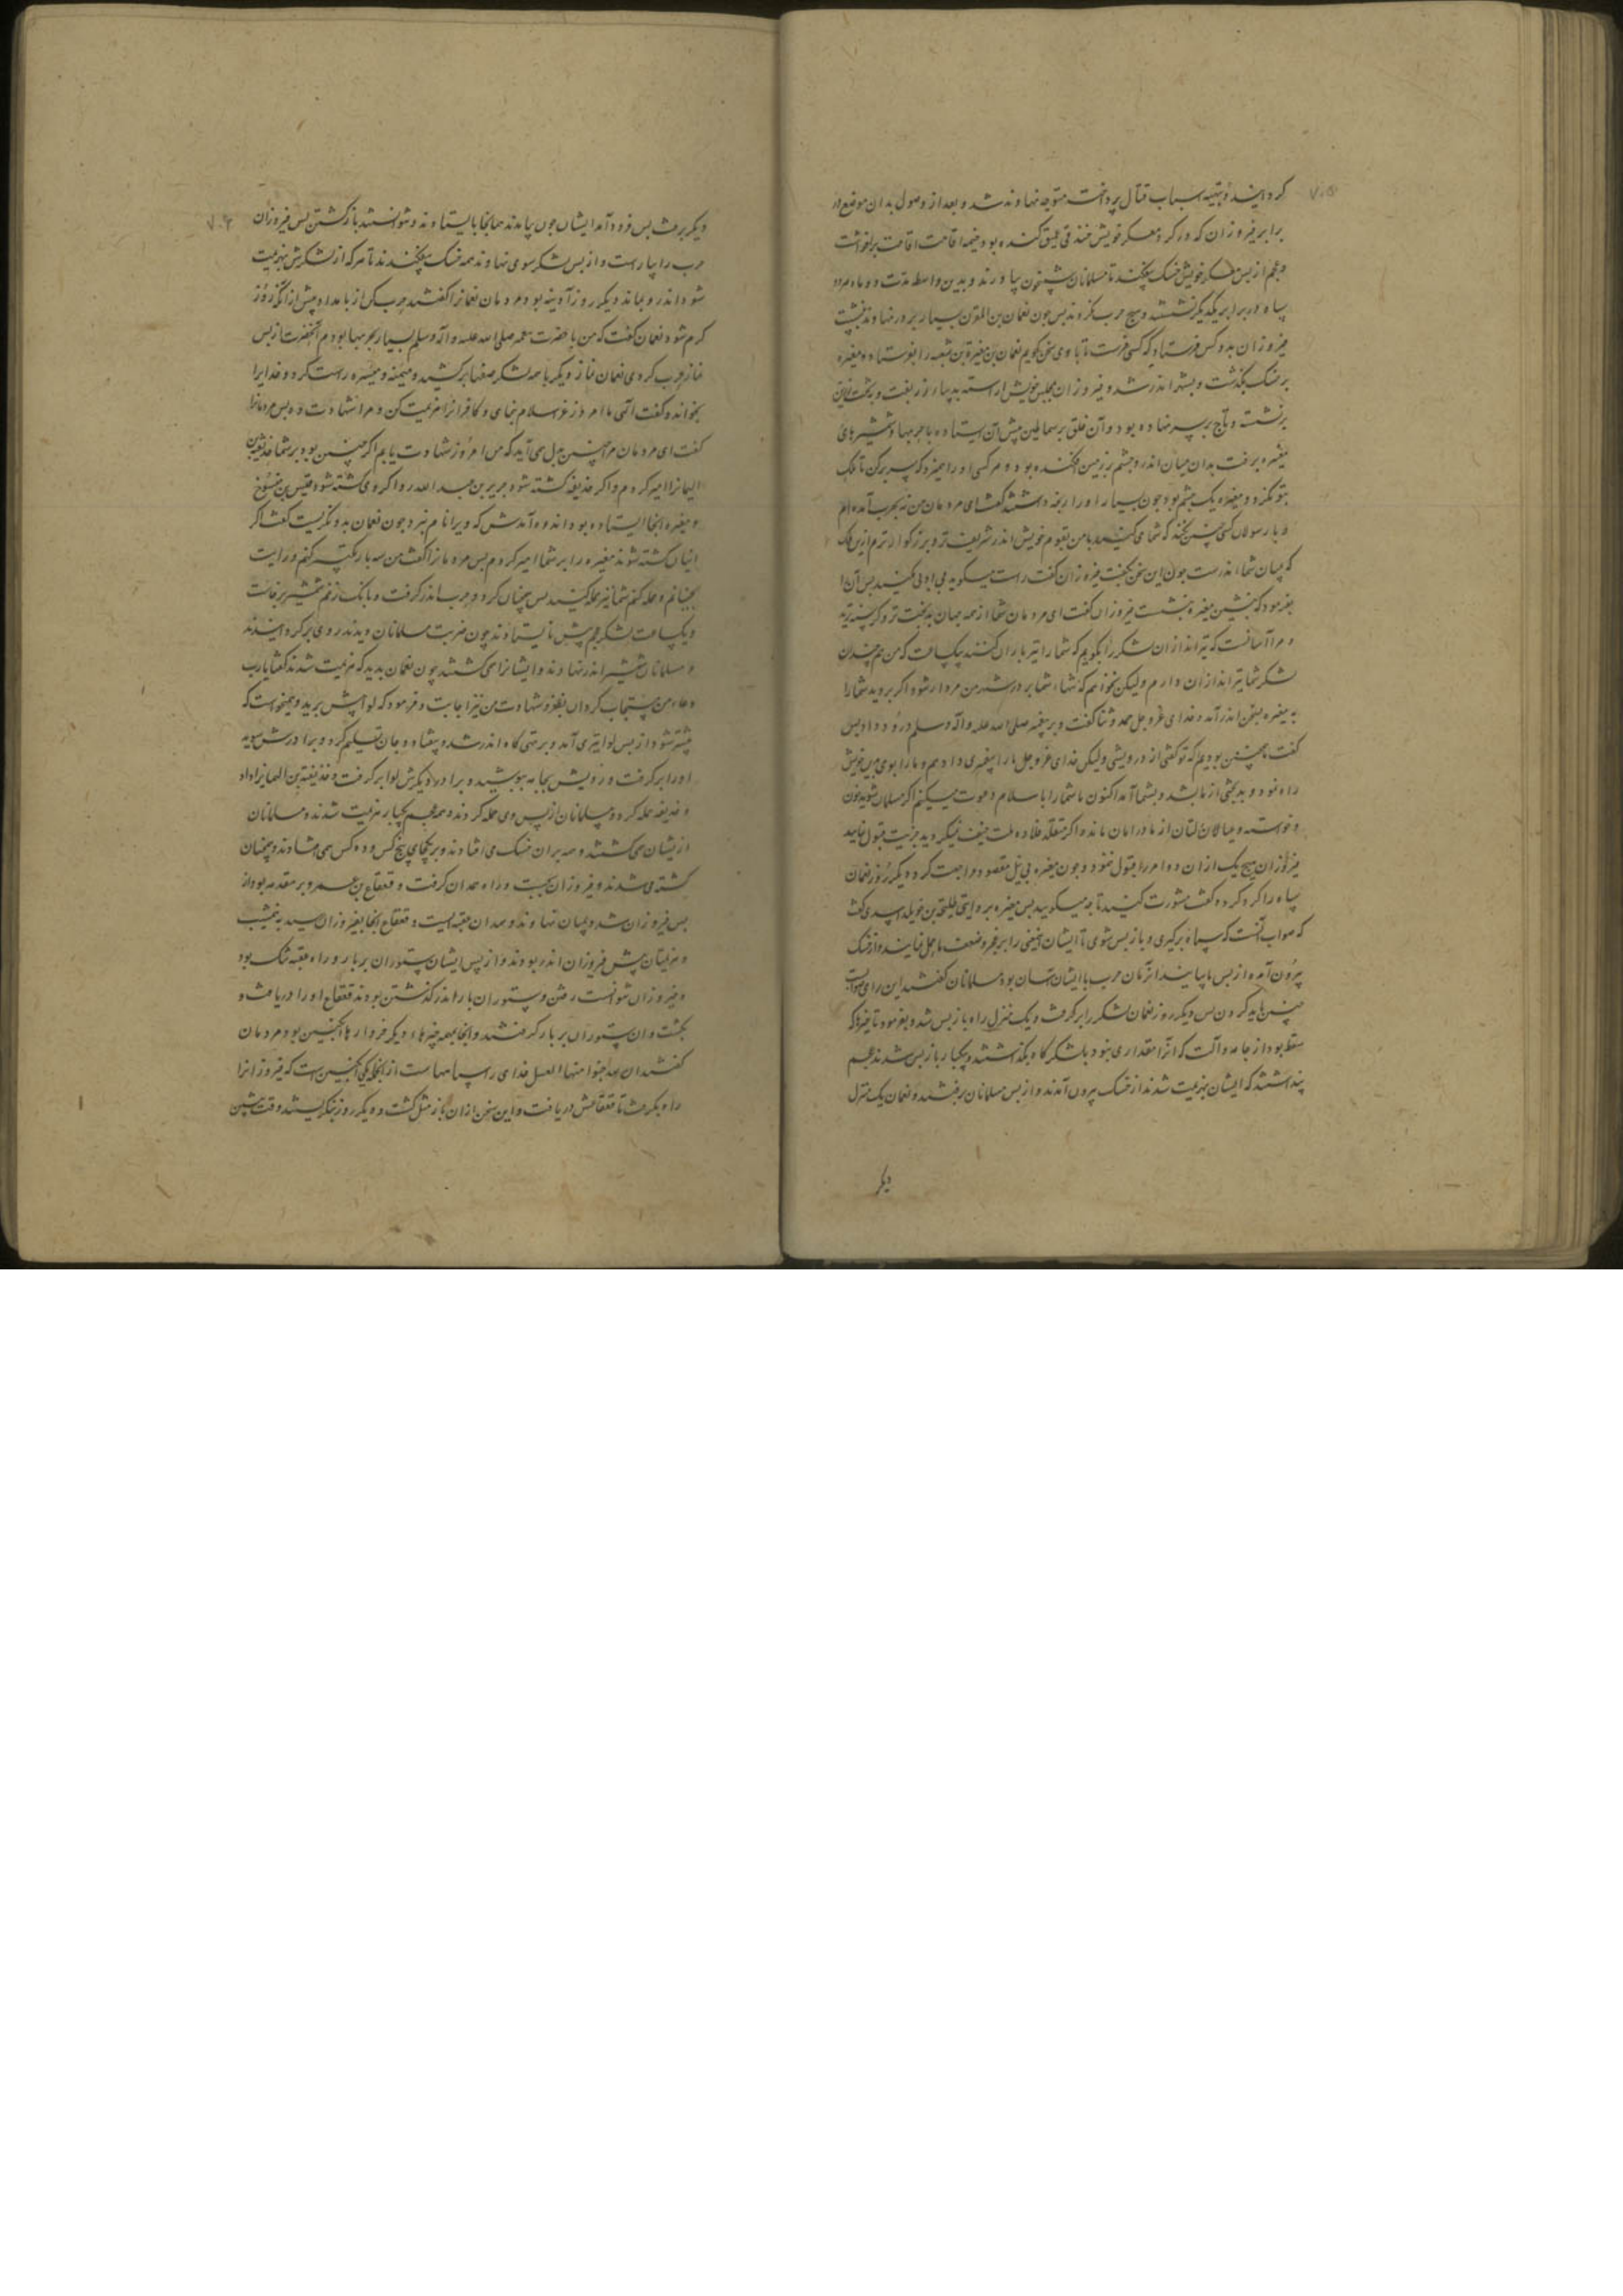 ۷۰۵
کردانیده و بتهیه اسباب قتال پرداخت متوجه نهاوند شد و بعد از وصول بدان موضع در
برابر فیروزان که در کرد معسکر خویش خندقی عمیق کنده بود خیمه اقامت برافراشت
و عجم از پس لشکر خویش خسک بیفکندند تا مسلمانان شبیخون نیاورند و بدین واسطه مدت دو ماه هر دو
سپاه در برابر یکدیگر نشستند و هیچ حرب نکردند پس چون نعمان بن المقرن بسیار بر در نهاوند بنشست
فیروزان بدو کس فرستاد که کسی فرست تا با وی سخن کویم نعمان مغیرة بن شعبه را بفرستاد و مغیره
بر خسک بگذشت و بشهر اندر شد و فیروزان مجلس خویش آراسته بدیباء زربفت و بر تخت زرین
بنشست و تاج بر سر نهاده بود و آن خلق بر سماطین پیش آن ایستاده با حربها و شمشیرهای
مغیره برفت بدان میان اندر و چشم بر زمین افکنده بود و هر کسی او را
بتو نگرد و مغیره یک چشم بود چون بسیار او را رنجه داشتند گفت ای مردمان من نه بحرب آمده‌ام
و با رسولان کسی چنین نکند که شما می‌کنید با من بقوم خویش اندر شریفتر و بزرگوارترم از این ملک
که میان شما اندرست چون این سخن بگفت فیروزان گفت راست میگوید بی ادبی مکنید پس آن
بفرمود که بنشین مغیره بنشست فیروزان گفت ای مردمان شما از همه جهان بدبخت تر و گرسنه ترید
و مرا آسانست که تیراندازان لشکر را بگویم که شما را تیرباران کنند بیکساعت که من هم چندان
لشکر شما تیراندازان دارم ولیکن نخواهم که شما، شما بر در شهر من مردار شود اگر بروید شما را
مغیره بسخن اندر آمد و خدای عز و جل حمد و ثنا گفت و بر پیغمبر صلی الله علیه و آله و سلم درود داد پس
گفت همچنین بودیم که تو گفتی از درویشی ولیکن خدای عز و جل ما را پیغمبری داد هم و ما را بوی دین خویش
راه نمود و بدبختی از ما بشد و بشما آمد اکنون ما شما را باسلام دعوت میکنیم اگر مسلمان شوید خون
و خواسته و عیالان تان از ما در امان ماند و اگر متقلد قلاده ملت حنیف نمیگردید جزیت قبول نمایید
فیروزان هیچ یک ازان دو امر را قبول ننمود و چون مغیره بی نیل مقصود مراجعت کرد دیگر روز نعمان
سپاه را گرد کرده گفت مشورت کنید تا چه میگویید پس مغیره بروایتی طلیحة بن خویلد اسدی گفت
که صواب آنست که سپاه برگیری و باز پس شوی تا ایشان این معنی را بر عجز و ضعف ما حمل نمایند و از خسک
بیرون آمده از پس ما بیایند آنزمان حرب با ایشان آسان بود مسلمانان گفتند این رای صوابست
چنین باید کردن پس دیگر روز نعمان لشکر را بر گرفت و یک منزل راه باز پس شد و بفرمود تا هر چه
سقط بود از جامه و آلت که آنرا مقداری نبود بلشکرگاه بگذاشتند و یکبار باز پس شدند عجم
پنداشتند که ایشان بهزیمت شدند از خسک بیرون آمدند و از پس مسلمانان برفتند و نعمان یک منزل
دیگر
۷۰۶
دیگر برفت پس فرود آمد ایشان چون بیامدند همانجا بایستادند و نتوانستند بازگشتن پس فیروزان
حرب را بیاراست و از پس لشکر سوی نهاوند همه خسک بیفکندند تا هر که از لشکرش بهزیمت
شود اندرو بماند دیگر روز آدینه بود مردمان نعمانرا گفتند حرب کن از بامداد پیش از آنکه روز
گرم شود نعمان گفت که من با حضرت محمد صلی الله علیه و آله و سلم بسیار بحربها بودم آنحضرت از پس
نماز حرب کردی نعمان نماز دیگر با همه لشکر صفها بر کشید و میمنه و میسره راست کرد و خدایرا
بخواند و گفت الهی ما را امروز عز اسلام بنمای و کافرانرا هزیمت کن و مرا شهادت ده پس مردمانرا
گفت ای مردمان مرا چنین بدل می آید که من امروز شهادت یابم اگر چنین بود بر شما حذیفة بن
الیمانرا امیر کردم و اگر حذیفه کشته شود جریر بن عبد الله را و اگر وی کشته شود قیس بن
و مغیره آنجا ایستاده بود اندوه آمدش که ویرا نام نبرد چون نعمان بدو نگریست گفت اگر
اینان کشته شوند مغیره را بر شما امیر کردم پس مردمانرا گفت من سه بار تکبیر کنم و رایت
بجنبانم و حمله کنم شما نیز حمله کنید پس همچنان کرد و حرب اندر گرفت و بانک زخم شمشیر برخاست
و یکساعت لشکر عجم پیش نایستادند چون ضربت مسلمانان دیدند روی بر گردانیدند
و مسلمانان شمشیر اندر نهادند و ایشانرا می کشتند چون نعمان بدید که هزیمت شدند گفت یا رب
دعاء من مستجاب گردان بظفر و شهادت من نیز اجابت و فرمود که لوا پیش برید و میخواست که
کشته شود از پس لوا تیری آمد و بر تهی گاه اندر شد و بیفتاد و جان تسلیم کرد و برادرش سوید
او را بر گرفت و رویش بجامه بپوشید و برادر دیگرش لوا بر گرفت و حذیفة بن الیمانرا داد
و حذیفه حمله کرد و مسلمانان از پس وی حمله کردند و همه عجم یکبار هزیمت شدند و مسلمانان
از ایشان می کشتند و همه بران خسک می افتادند و بر یکجای پنج کس و ده کس همی افتادند و همچنان
کشته می شدند و فیروزان بجست و راه همدان گرفت و قعقاع بن عمرو بر مقدمه بود از
پس فیروزان شد و میان نهاوند و همدان عقبه ایست و قعقاع آنجا بفیروزان رسید
و هزیمتیان پیش فیروزان اندر بودند و از پس ایشان ستوران بر بار و راه عقبه تنگ بود
و فیروزان نتوانست رفتن و ستوران بار اندر گذشتن بودند قعقاع او را دریافت و
بکشت و آن ستوران بر بار گرفتند و آنجا همه چیزهاء دیگر خروارها انگبین بود مردمان
گفتند ان لله جنودا منها العسل خدای را سپاهها است از آنجمله یکی انگبین است که فیروزانرا
راه بگرفت تا قعقاعش دریافت و این سخن ازان باز مثل گشت و دیگر روز بنگریستند وقت پیشین